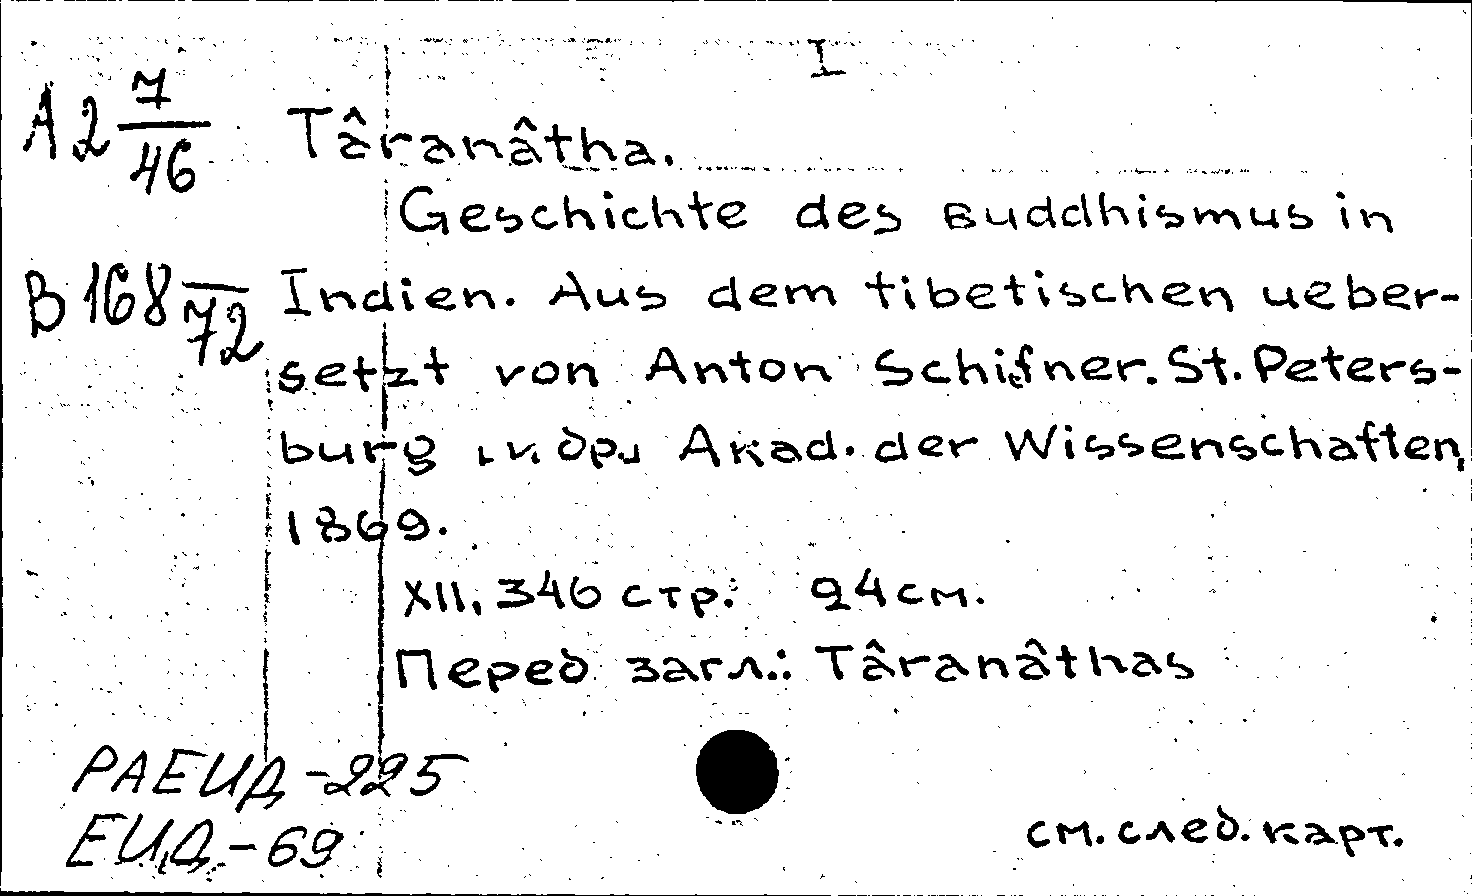 I
A2 7/46 Târanâtha.
Geschichte des Buddhismus in
B168 —/72 Indien. Aus dem tibetischen ueber-
setzt von Anton Schifner. St. Peters-
burg и др. Akad. der Wissenschaften,
1869.
XII, 346 стр. 24см.
Перед загл.: Târanâthas
РАЕИД-225
ЕИД-69
см. след. карт.